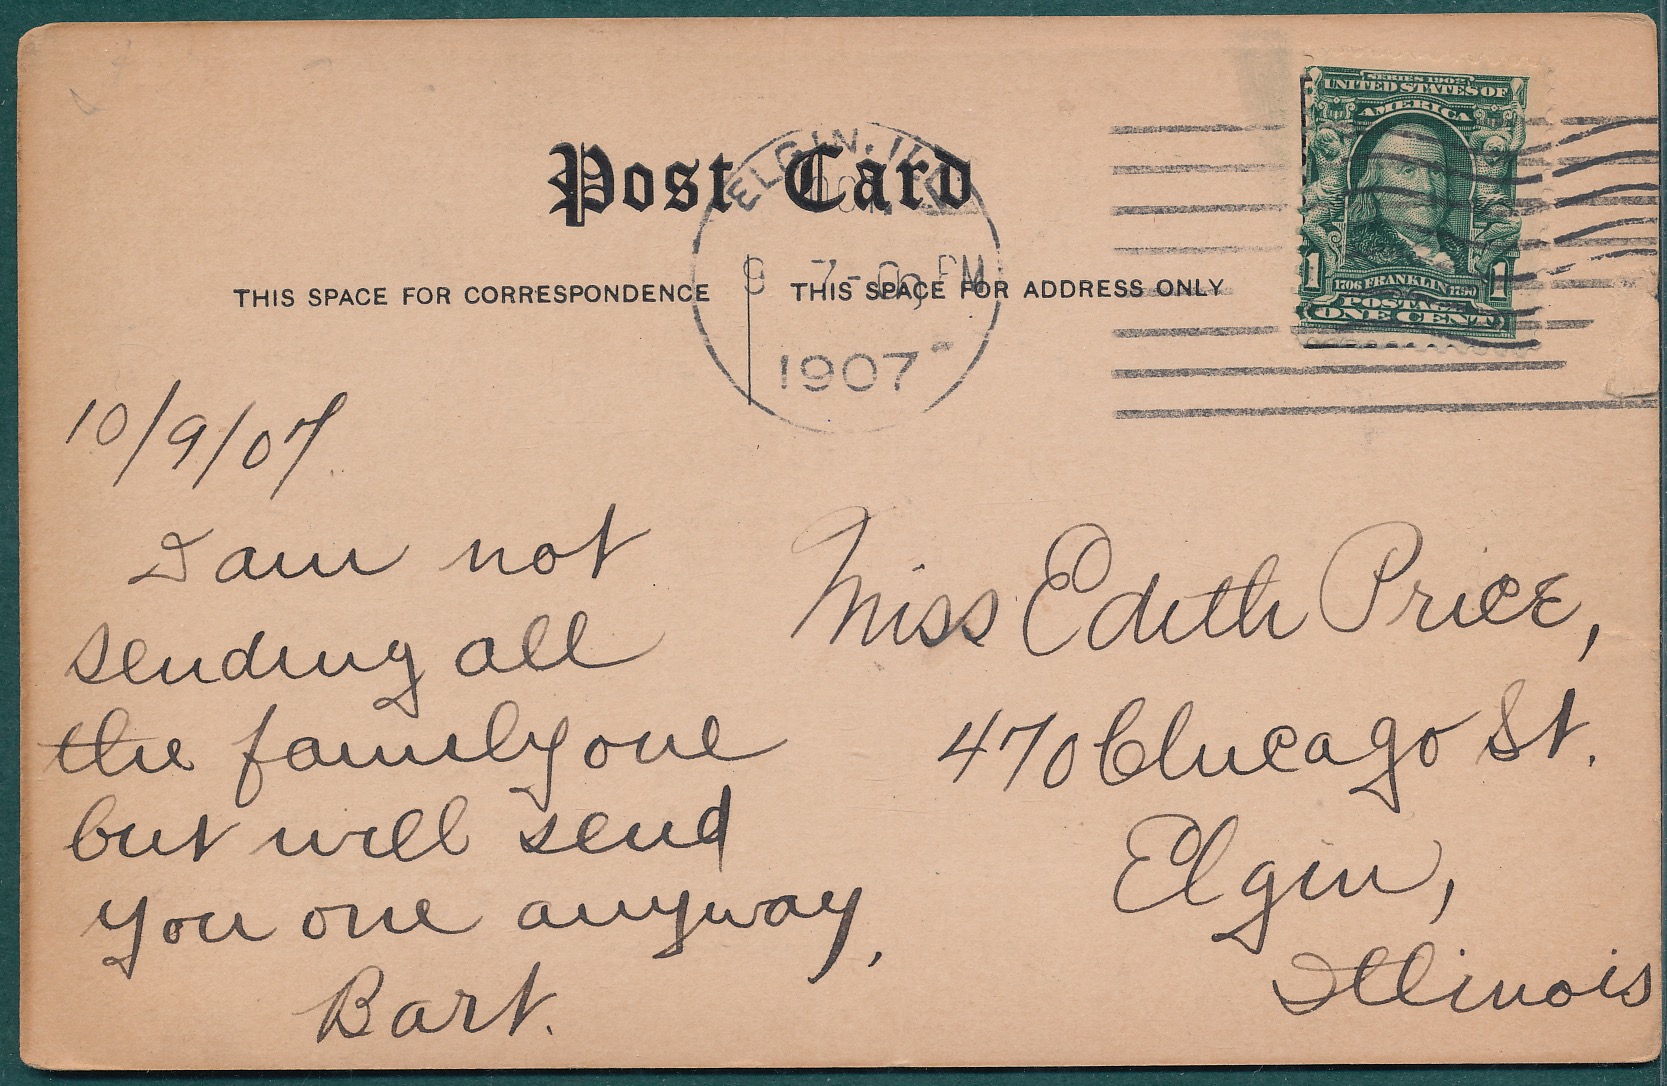 Post Card
THIS SPACE FOR CORRESPONDENCE
THIS SPACE FOR ADDRESS ONLY
ELGIN, ILL.
9 7- PM
1907
SERIES 1902
UNITED STATES OF
AMERICA
1 1706 FRANKLIN 1790 1
POSTAGE
ONE CENT
10/9/07
I am not
sending all
the family one
but will send
you one anyway,
Bart.
Miss Edith Price,
470 Chicago St.
Elgin,
Illinois